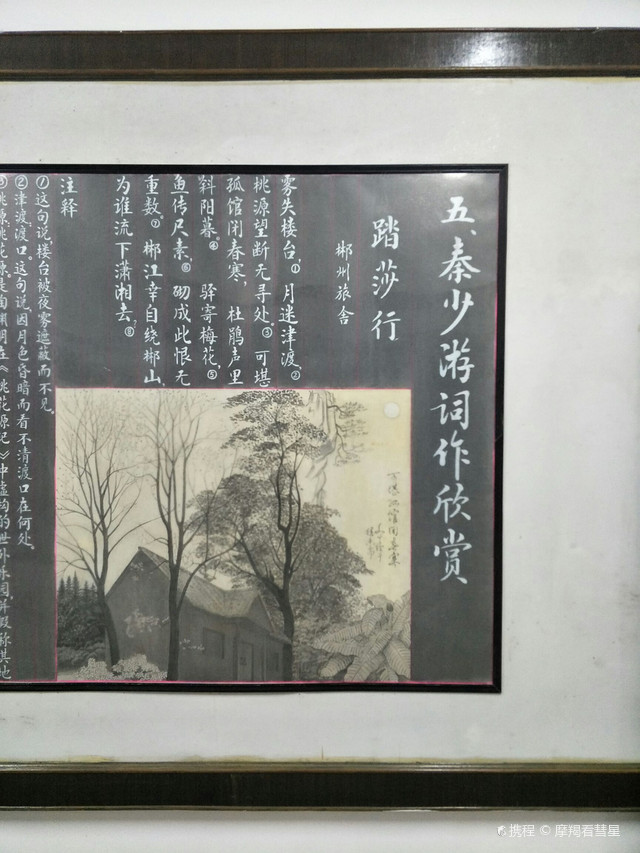 五、秦少游词作欣赏
踏莎行
郴州旅舍
雾失楼台，①月迷津渡。②
桃源望断无寻处。③可堪
孤馆闭春寒，杜鹃声里
斜阳暮。④驿寄梅花，⑤
鱼传尺素，⑥砌成此恨无
重数。⑦郴江幸自绕郴山，
为谁流下潇湘去。⑧
注释
①这句说，楼台被夜雾遮蔽而不见。
②津渡，渡口。这句说，因月色昏暗而看不清渡口在何处。
③桃源，桃花源，是陶渊明在《桃花源记》中虚构的世外乐园，并假称其地
可堪孤馆闭春寒
携程 © 摩羯看彗星